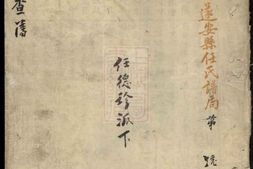 遂安縣任氏譜局 第 號
任德珍派下
查清